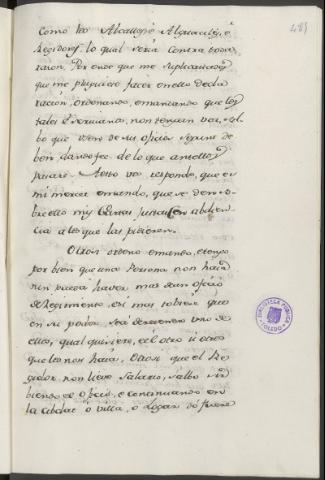 481
como los Alcalldes Alguaciles, é
Regidores lo qual seria contra vra
razon. Por ende que me suplicavades
que me pluguiese facer en ello decla
racion, ordenando, emandando que los
tales Escrivanos, non tengan voz, sal
bo que usen de sus oficios segund de
ben dando fee de lo que ante ellos
pasare. A esto vos respondo, que es
mi merced emando, que se den so
bre ello mis Cartas Justas en abdien
cia alos que las pidieren.
Otrosi ordeno emando, e tengo
por bien que una Persona non haia
nin pueda haver mas de un oficio
de Regimiento, e si mas toviere que
en su poder sea de retener uno de
ellos, qual quisiere, e el otro ú otros
que los non haia, Otrosi que el Re
gidor non lleve Salario, salbo sir
biendo el oficio, e continuando en
la cibdat ó villa, ó Logar dó fuere
BIBLIOTECA PUBLICA
TOLEDO